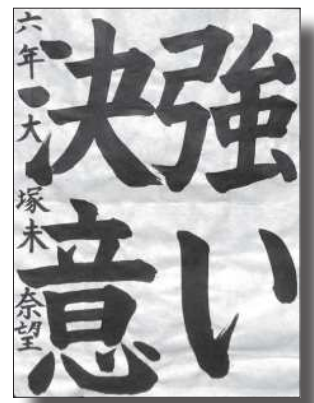 強い
決意
六年 大塚未奈望